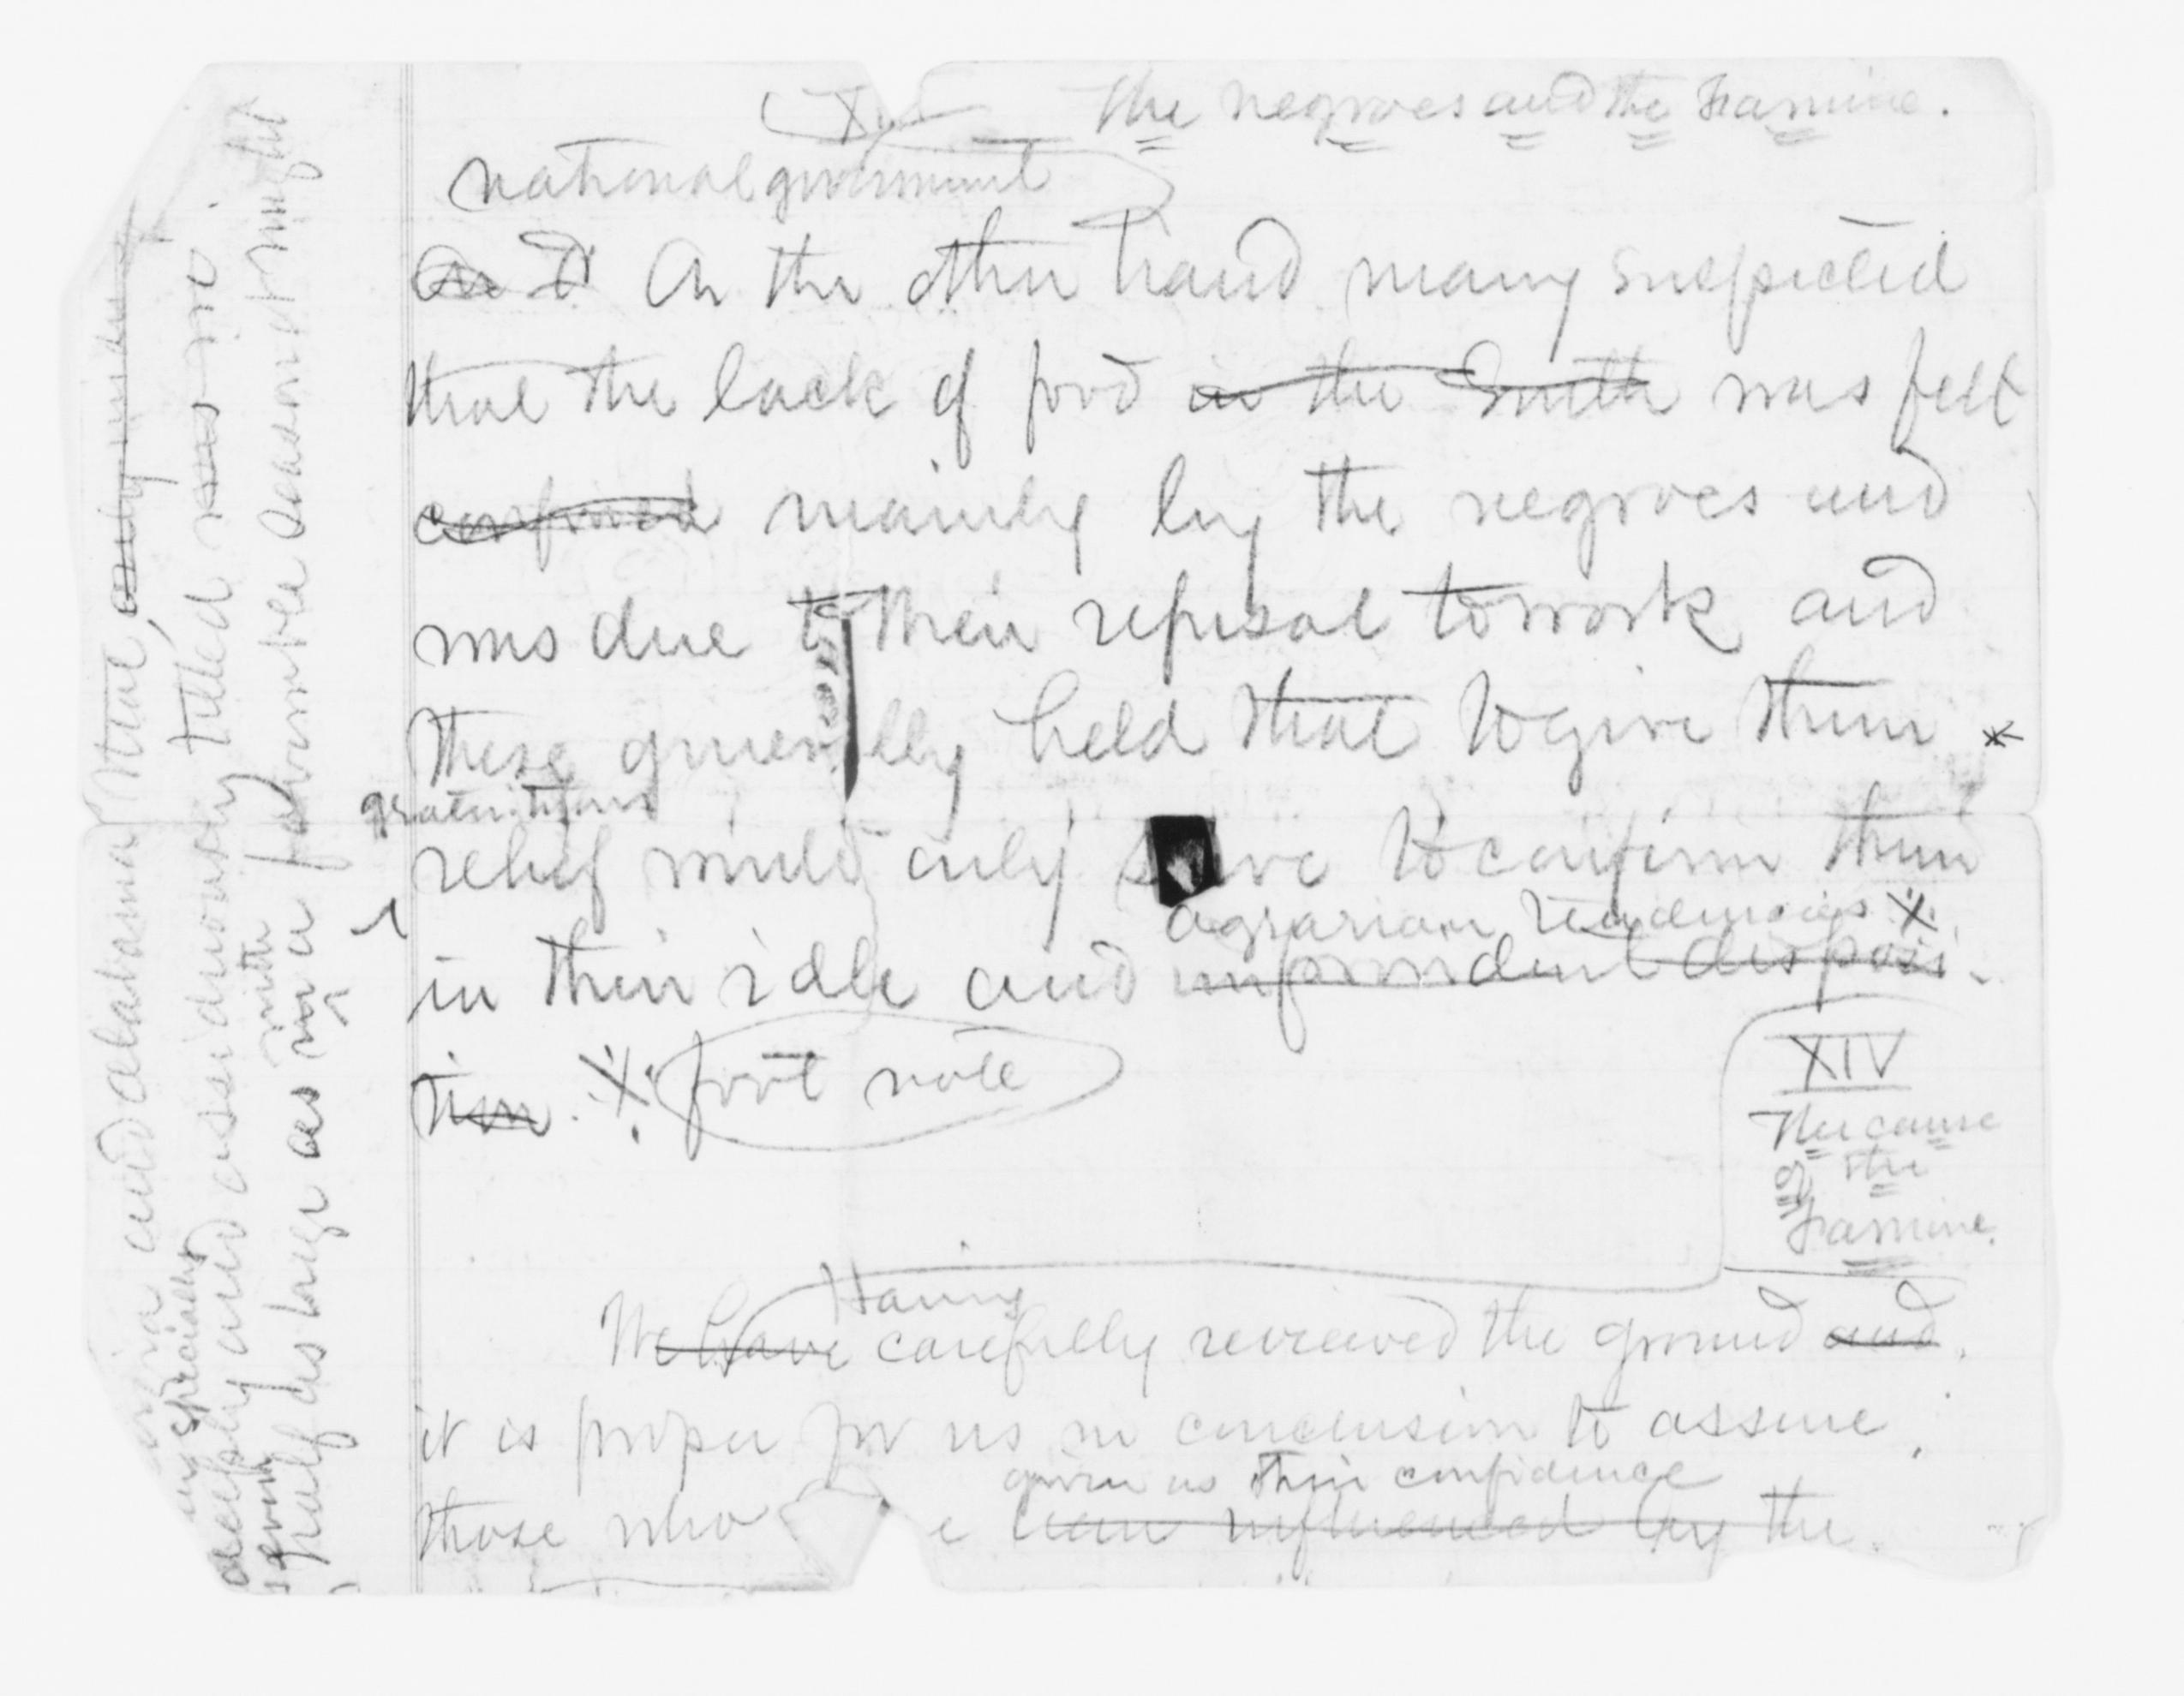 The negroes and the Famine.
national government
On the other hand many suspected
that the lack of food in the South was felt
confined mainly by the negroes and
was due to their refusal to work and
these generally held that to give them *
gratuitous
relief would only serve to confirm them
agrarian tendencies
in their idle and improvident disposi-
tion. foot note
XIV
The cause
of the
Famine.
Having
We have carefully reviewed the ground and
it is proper for us in conclusion to assure
given us their confidence
those who been influenced by the
and Alabama that only
specially
deeply and assiduously tilled was no
with
half as large as in a favorable season it might